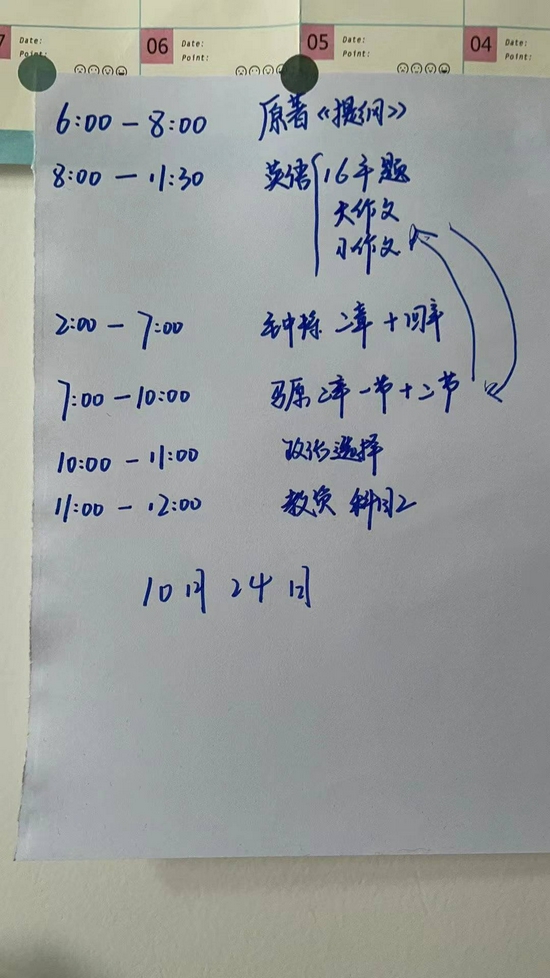 7 Date: Point:
06 Date: Point:
05 Date: Point:
04 Date: Point:
6:00 — 8:00 原著《提纲》
8:00 — 11:30 英语 16年题
大作文
小作文
2:00 — 7:00 毛中特 二章 + 四章
7:00 — 10:00 马原 2章 一节 + 二节
10:00 — 11:00 政治选择
11:00 — 12:00 教资 科目2
10月24日